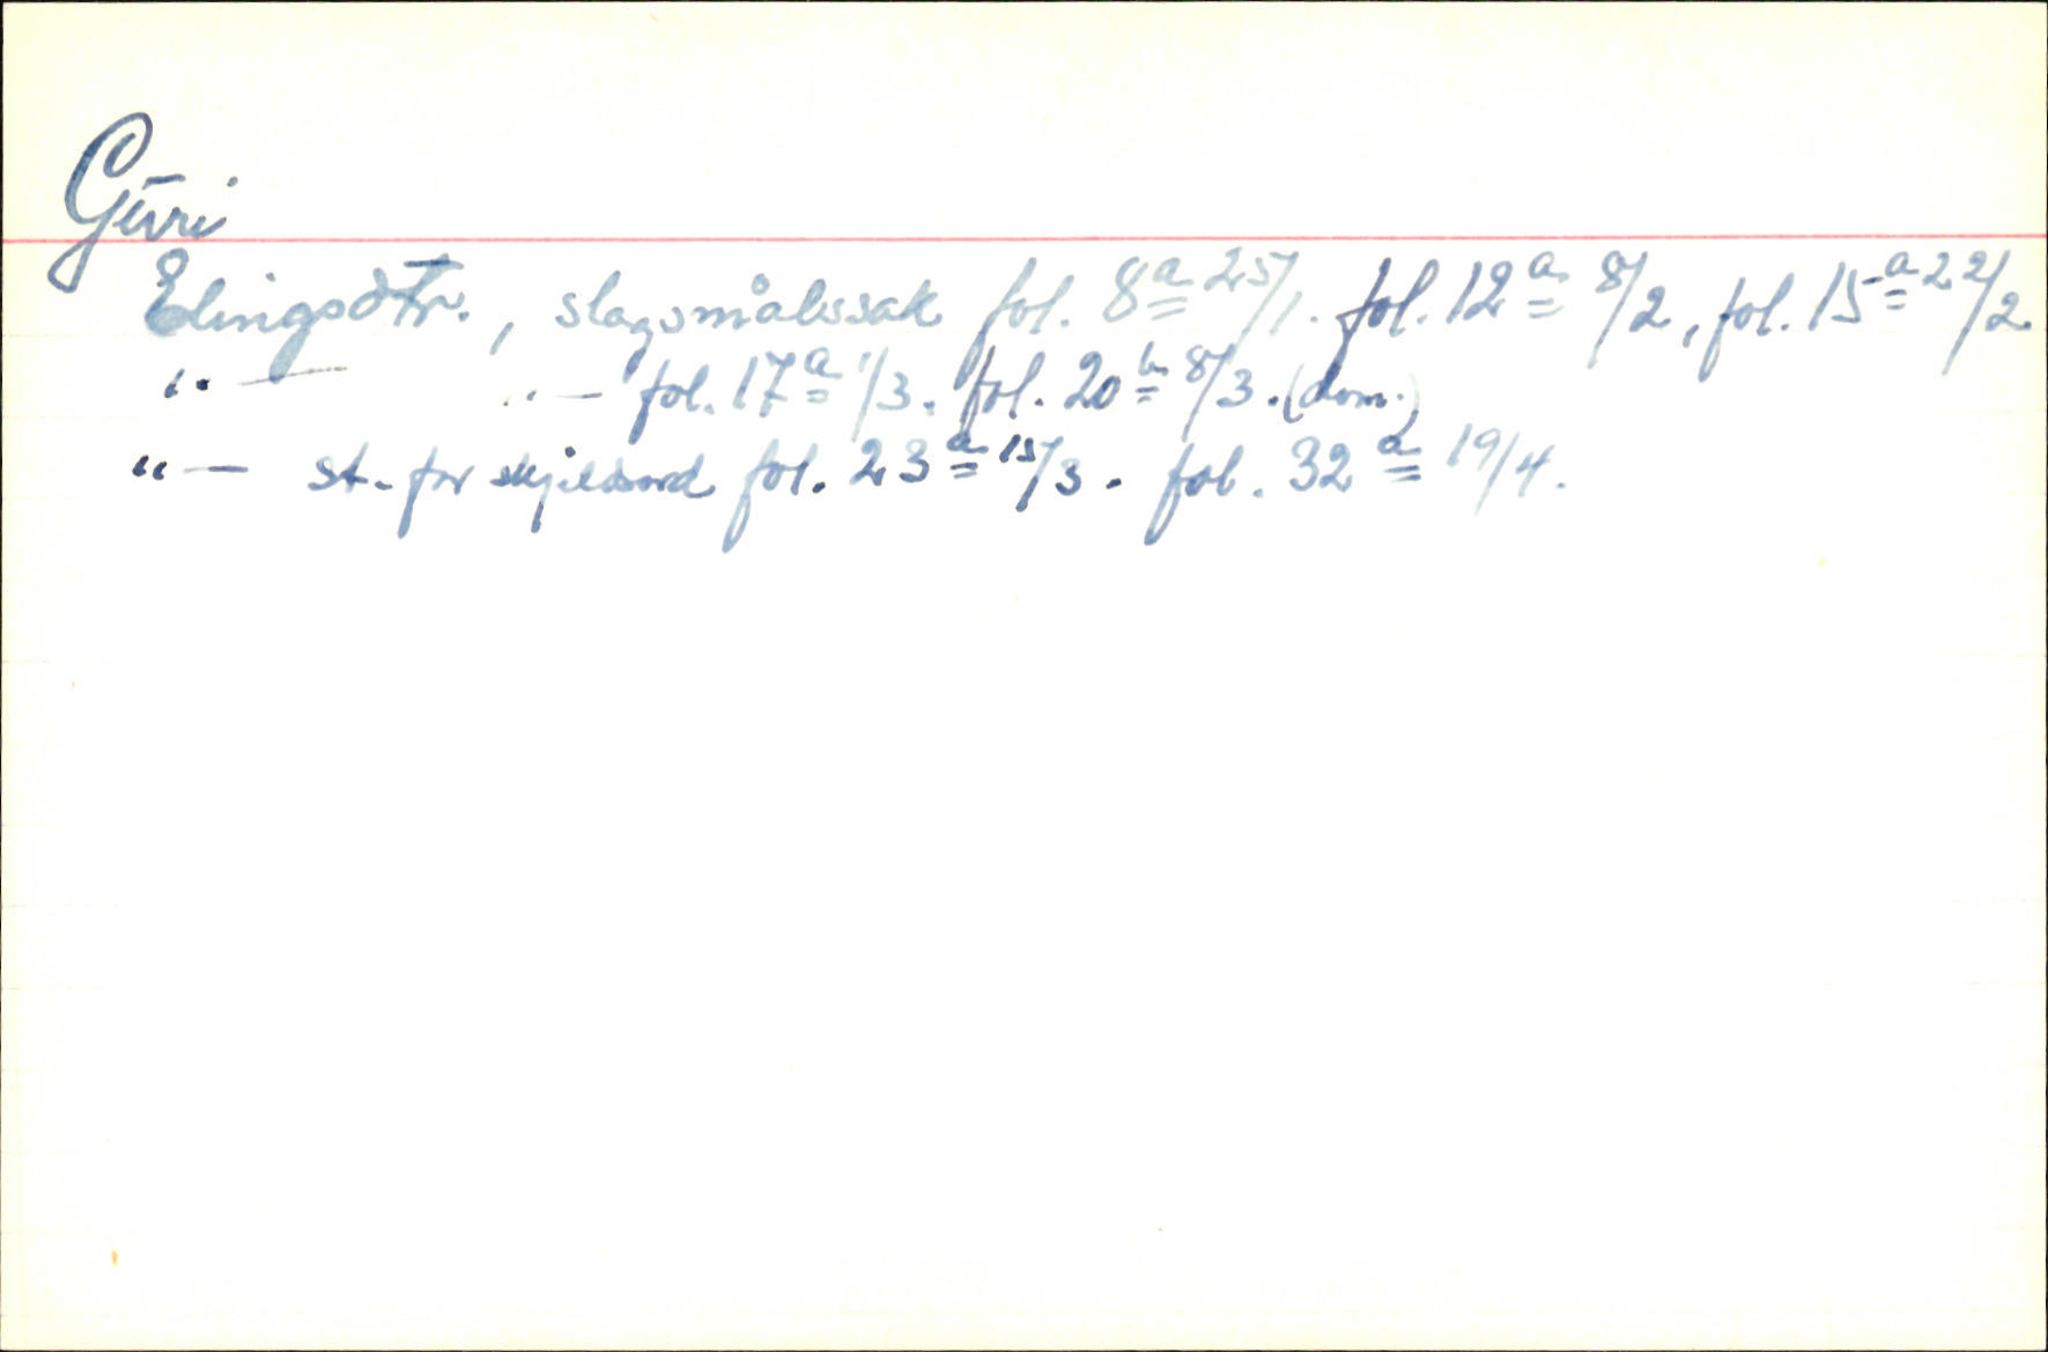 Gūri
Elingsdtr., slagsmålssak fol. 8a 25/1. fol. 12a 8/2, fol. 15a 22/2.
"— "— fol. 17a 1/3. fol. 20b 8/3. (dom.)
"— st. for skjeldsord fol. 23a 15/3. fol. 32a 19/4.